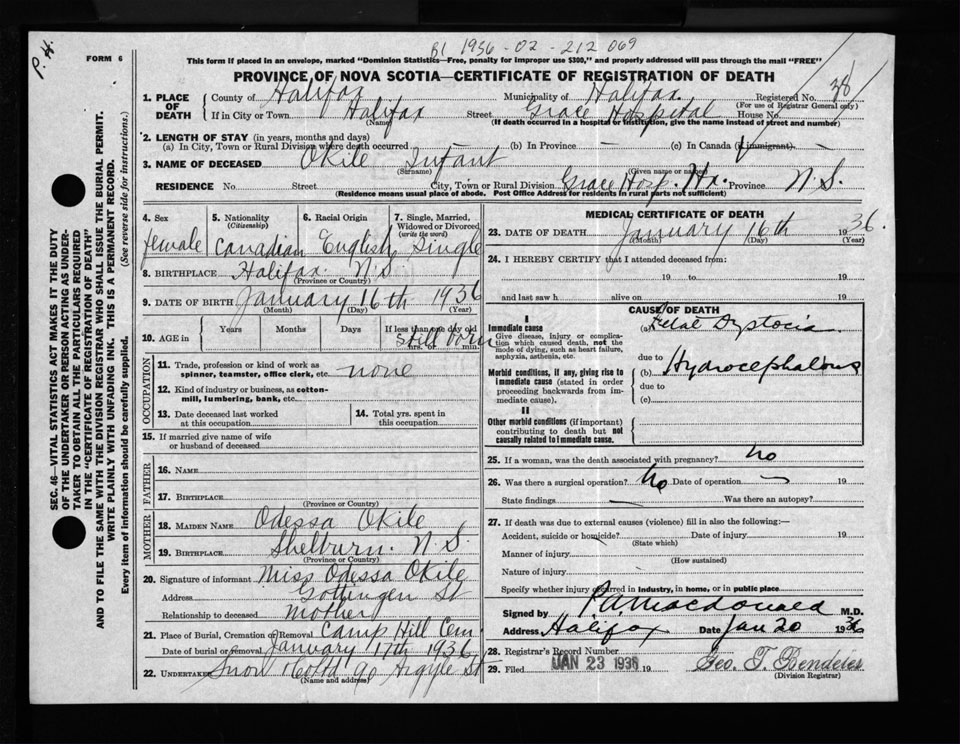 P. H.
B1 1936-02-212 069
FORM 6
This form if placed in an envelope, marked "Dominion Statistics—Free, penalty for improper use $300," and properly addressed will pass through the mail "FREE"
PROVINCE OF NOVA SCOTIA—CERTIFICATE OF REGISTRATION OF DEATH
SEC. 46—VITAL STATISTICS ACT MAKES IT THE DUTY
OF THE UNDERTAKER OR PERSON ACTING AS UNDER-
TAKER TO OBTAIN ALL THE PARTICULARS REQUIRED
IN THE "CERTIFICATE OF REGISTRATION OF DEATH"
AND TO FILE THE SAME WITH THE DIVISION REGISTRAR WHO SHALL ISSUE THE BURIAL PERMIT.
WRITE PLAINLY WITH UNFADING INK. THIS IS A PERMANENT RECORD.
Every item of information should be carefully supplied. (See reverse side for instructions.)
1. PLACE OF DEATH County of Halifax Municipality of Halifax Registered No. 38
(For use of Registrar General only)
If in City or Town Halifax Street Grace Hospital House No.
(Name) (If death occurred in a hospital or institution, give the name instead of street and number)
2. LENGTH OF STAY (in years, months and days)
(a) In City, Town or Rural Division where death occurred (b) In Province — (c) In Canada (if immigrant) —
3. NAME OF DECEASED Okile Infant
(Surname) (Given name or names)
RESIDENCE No. Street City, Town or Rural Division Grace Hosp. Hx. Province N.S.
(Residence means usual place of abode. Post Office Address for residents in rural parts not sufficient)
4. Sex female
5. Nationality (Citizenship) Canadian
6. Racial Origin English
7. Single, Married, Widowed or Divorced (write the word) Single
8. BIRTHPLACE Halifax N.S
(Province or Country)
9. DATE OF BIRTH January 16th 1936
(Month) (Day) (Year)
10. AGE in Years Months Days If less than one day old
Still born hrs. or min.
OCCUPATION
11. Trade, profession or kind of work as spinner, teamster, office clerk, etc. none
12. Kind of industry or business, as cotton-mill, lumbering, bank, etc.
13. Date deceased last worked at this occupation
14. Total yrs. spent in this occupation
15. If married give name of wife or husband of deceased
FATHER
16. NAME
17. BIRTHPLACE
(Province or Country)
MOTHER
18. MAIDEN NAME Odessa Okile
19. BIRTHPLACE Shelburn. N.S.
(Province or Country)
20. Signature of informant Miss Odessa Okile
Address Gottingen St
Relationship to deceased Mother
21. Place of Burial, Cremation or Removal Camp Hill Cem.
Date of burial or removal January 17th 1936
22. UNDERTAKER Snow & Co Ltd 90 Argyle St
(Name and address)
MEDICAL CERTIFICATE OF DEATH
23. DATE OF DEATH January 16th 1936.
(Month) (Day) (Year)
24. I HEREBY CERTIFY that I attended deceased from:
19 to 19
and last saw h alive on 19
CAUSE OF DEATH
I
Immediate cause
Give disease, injury or complication which caused death, not the mode of dying, such as heart failure, asphyxia, asthenia, etc.
(a) Fetal Dystocia
due to
Morbid conditions, if any, giving rise to immediate cause (stated in order proceeding backwards from immediate cause).
(b) Hydrocephalous
due to
(c)
II
Other morbid conditions (if important) contributing to death but not causally related to immediate cause.
25. If a woman, was the death associated with pregnancy? No
26. Was there a surgical operation? No Date of operation — 19
State findings — Was there an autopsy?
27. If death was due to external causes (violence) fill in also the following:—
Accident, suicide or homicide? Date of injury 19
(State which)
Manner of injury
(How sustained)
Nature of injury
Specify whether injury occurred in industry, in home, or in public place
Signed by P A Macdonald M.D.
Address Halifax Date Jan 20 1936
28. Registrar's Record Number
29. Filed JAN 23 1936 19 Geo. T. Bendeler
(Division Registrar)